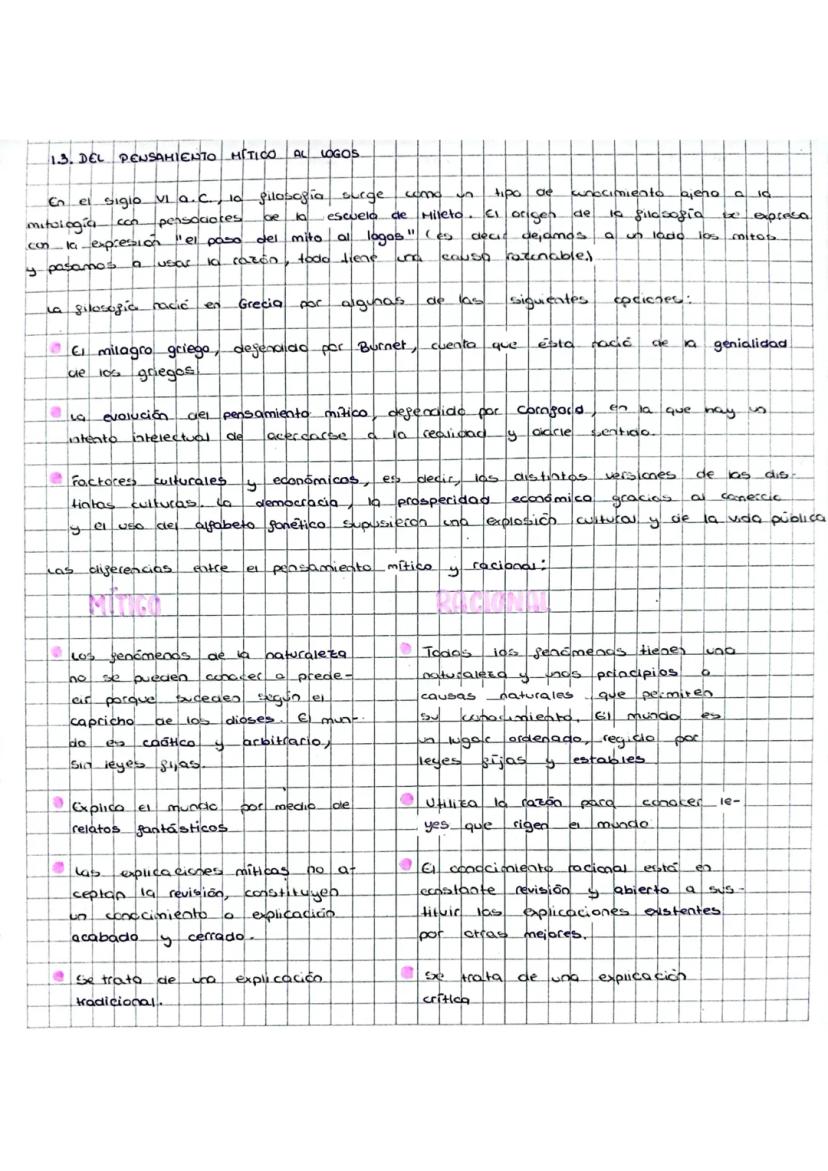 1.3. DEL PENSAMIENTO MÍTICO AL LOGOS
En el siglo VI a.C., la filosofía surge como un tipo de conocimiento ajeno a la
mitología con pensadores de la escuela de Mileto. El origen de la filosofía se expresa
con la expresión "el paso del mito al logos" (es decir dejamos a un lado los mitos
y pasamos a usar la razón, todo tiene una causa razonable)
La filosofía nació en Grecia por algunas de las siguientes opciones:
El milagro griego, defendido por Burnet, cuenta que ésta nació de la genialidad
de los griegos.
La evolución del pensamiento mítico, defendido por Cornford, en la que hay un
intento intelectual de acercarse a la realidad y darle sentido.
Factores culturales y económicos, es decir, las distintas versiones de las dis-
tintas culturas. La democracia, la prosperidad económica gracias al comercio
y el uso del alfabeto fonético supusieron una explosión cultural y de la vida pública
Las diferencias entre el pensamiento mítico y racional:
MÍTICO
Los fenómenos de la naturaleza
no se pueden conocer o prede-
cir porque suceden según el
capricho de los dioses. El mun-
do es caótico y arbitrario,
sin leyes fijas.
Explica el mundo por medio de
relatos fantásticos
Las explicaciones míticas no a-
ceptan la revisión, constituyen
un conocimiento o explicación
acabado y cerrado.
Se trata de una explicación
tradicional.
RACIONAL
Todos los fenómenos tienen una
naturaleza y unos principios o
causas naturales que permiten
su conocimiento. El mundo es
un lugar ordenado, regido por
leyes fijas y estables
Utiliza la razón para conocer le-
yes que rigen el mundo
El conocimiento racional está en
constante revisión y abierto a sus-
tituir las explicaciones existentes
por otras mejores.
Se trata de una explicación
crítica